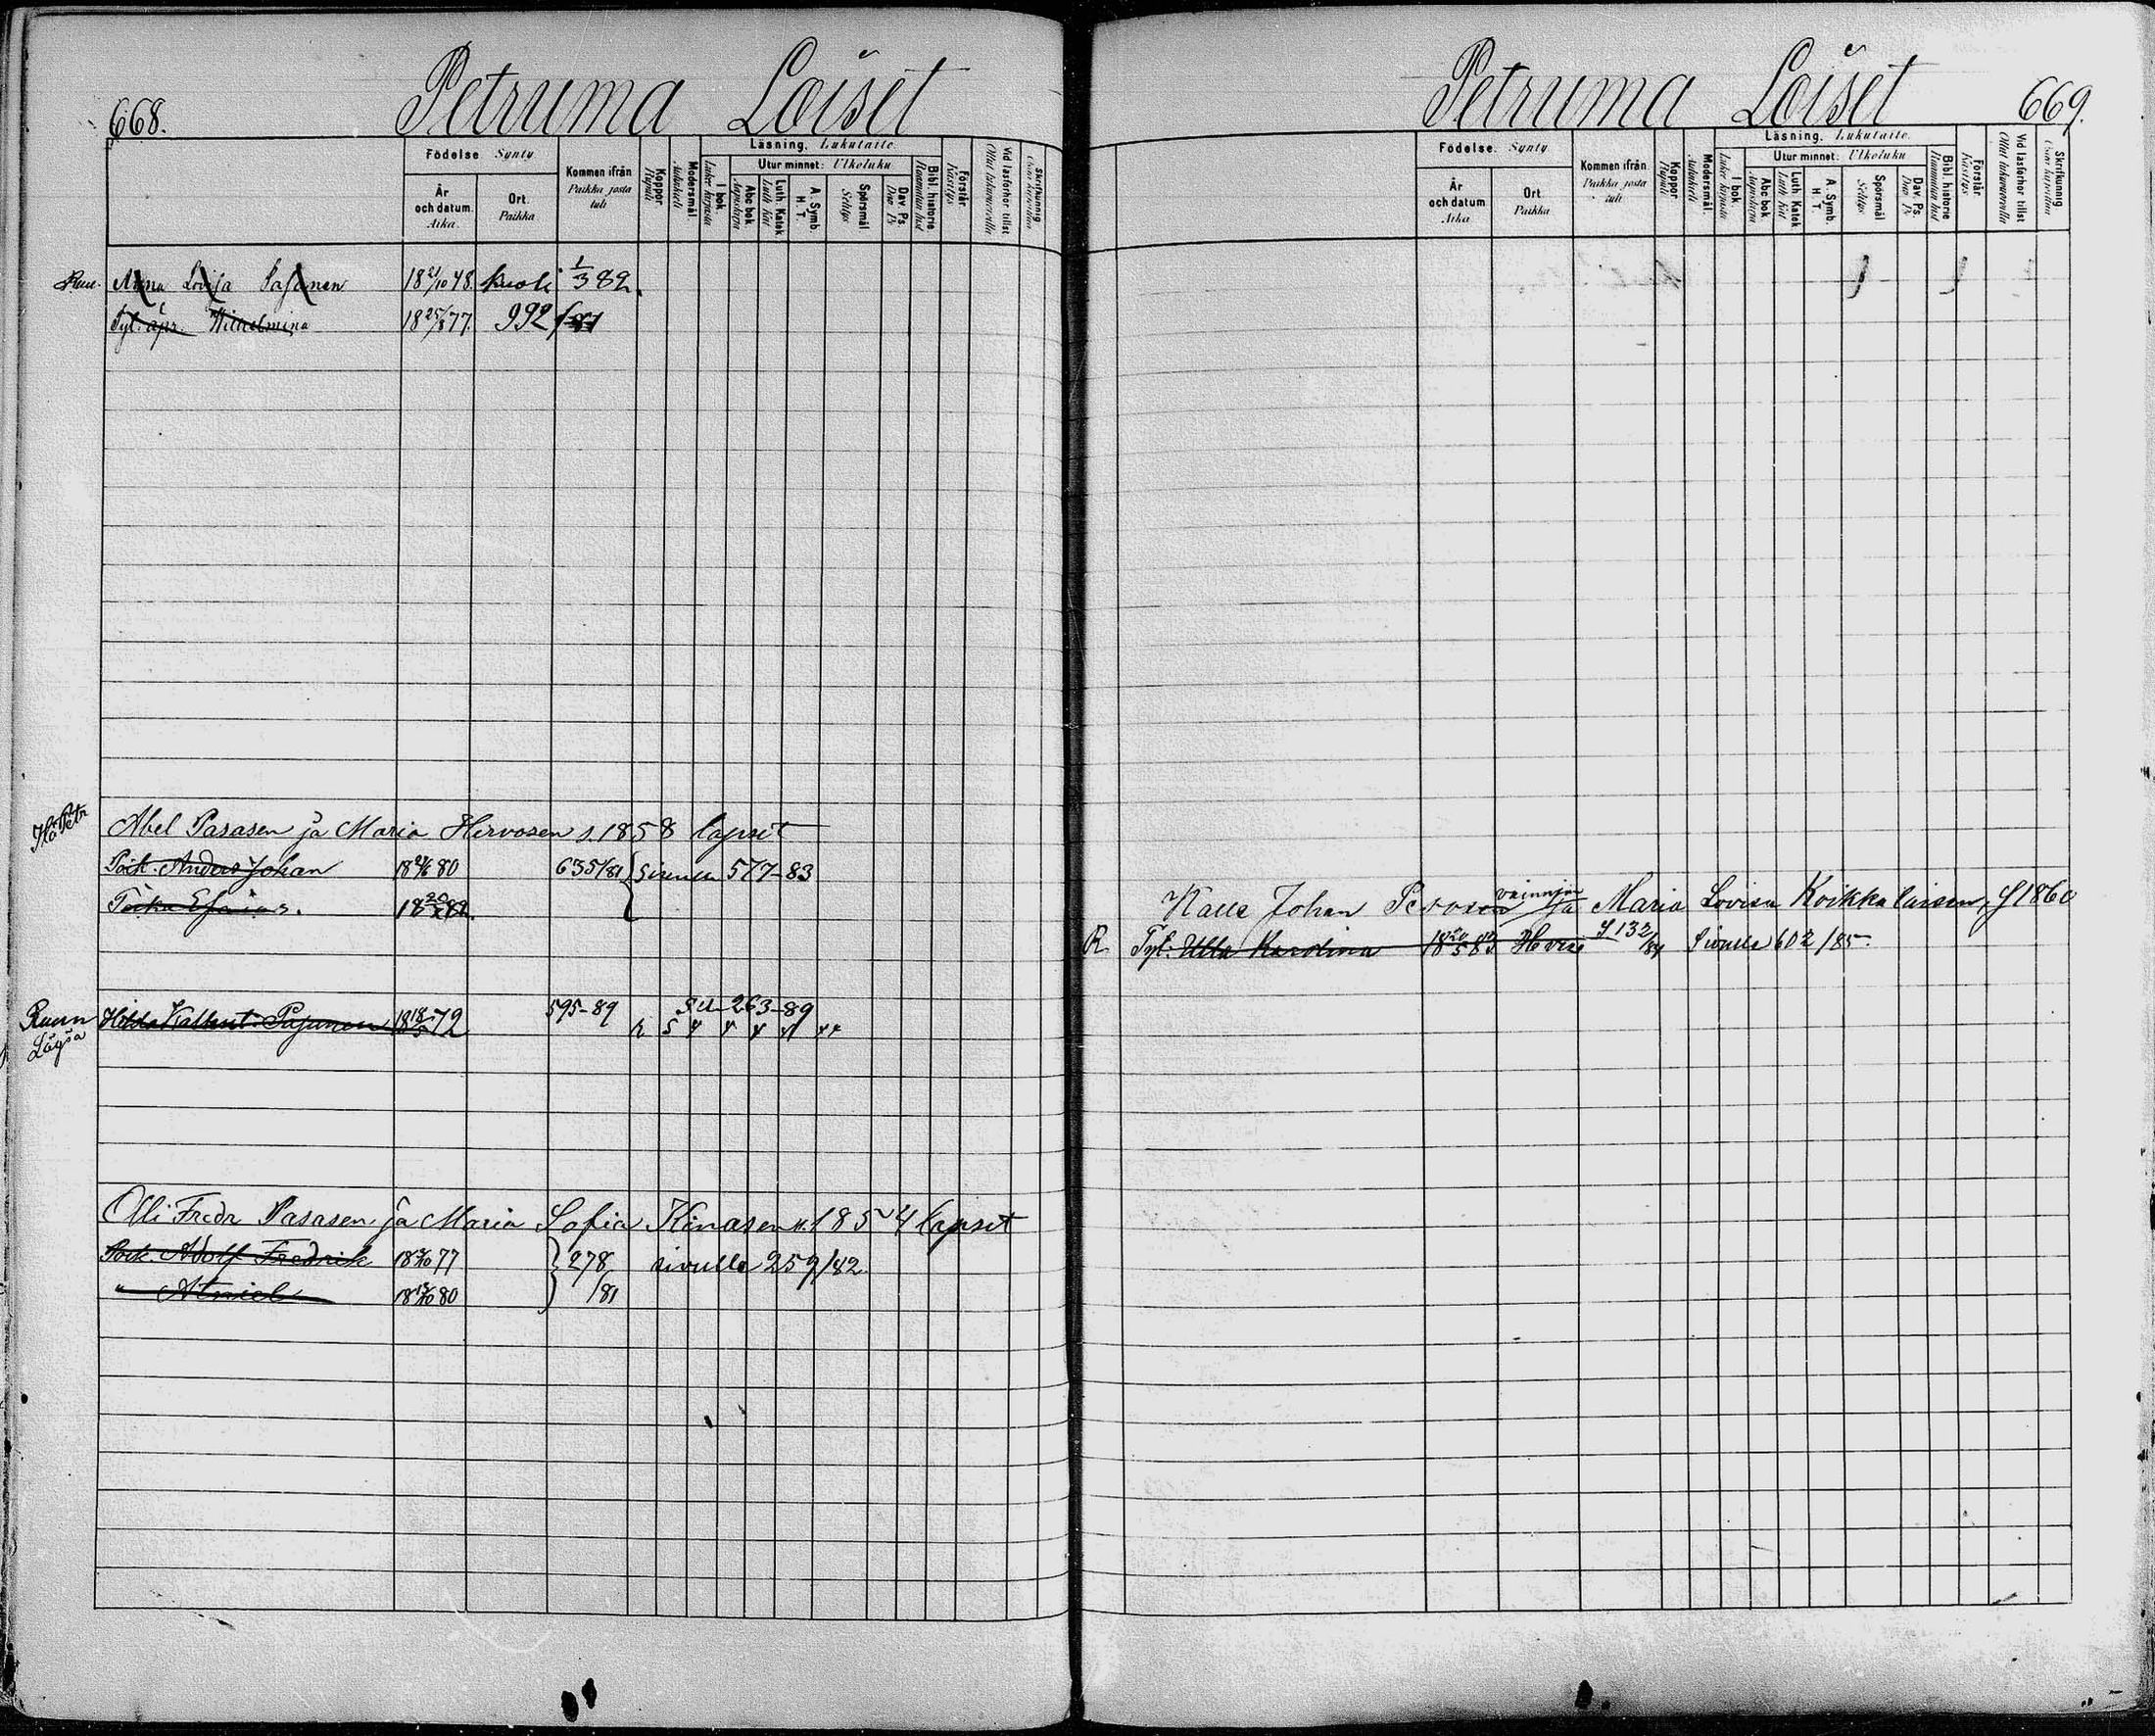 668.
Petruma Loiset
Födelse Synty
Kommen ifrån
Paikka josta tuli
Koppor
Rupuli
Modersmål
Äidinkieli
Läsning. Lukutaito.
Utur minnet: Ulkoluku
I bok.
Luku kirjasta
Abc bok
Aapiskirja
Luth. Katek
Luth. Kat
A. Symb
H. T.
Spörsmål
Selitys
Dav. Ps.
Dav. Ps
Bibl. historie
Raamatun hist
Förstår
Käsitys
Vid läsförhör tillst
Ollut lukuvuorolla
Skrifkunnig
Osaa kirjoittaa
År och datum.
Aika.
Ort.
Paikka
Anna Lovisa Pasanen 18 21/10 48. kuoli 1/3 82.
Tyt. äpr. Wilhelmina 18 25/8 77. 992/81
Abel Pasasen ja Maria Hirvosen s. 1858 lapset
Poik. Anders Johan 18 80 635/81 Sivulle 577-83
Poika Esaias. 18 82
595-89 Siv 263-89
Hilda Pajunen 18 18/5 72 5 4 4 4 4
Olli Fredr Pasasen ja Maria Sofia s. 1854 lapset
Poik. Adolf Fredrik 18 77 278/81 sivulle 259/82
" 18 80
Petruma Loiset
669.
Födelse. Synty
Kommen ifrån
Paikka josta tuli
Koppor
Rupuli
Modersmål.
Äidinkieli
Läsning. Lukutaito.
Utur minnet: Ulkoluku
I bok.
Luku kirjasta
Abc bok
Aapiskirja
Luth. Katek
Luth. Kat
A. Symb.
H. T.
Spörsmål
Selitys
Dav. Ps.
Dav. Ps
Bibl. historie
Raamatun hist
Förstår.
Käsitys
Vid läsförhör tillst
Ollut lukuvuorolla
Skrifkunnig
Osaa kirjoittaa
År och datum
Aika
Ort.
Paikka
Kalle Johan ja Maria Lovisa Koikkalaisen, s 1860
R. Tyt. Ulla Karolina 18 83 S 132/84 Sivulle 602/85.